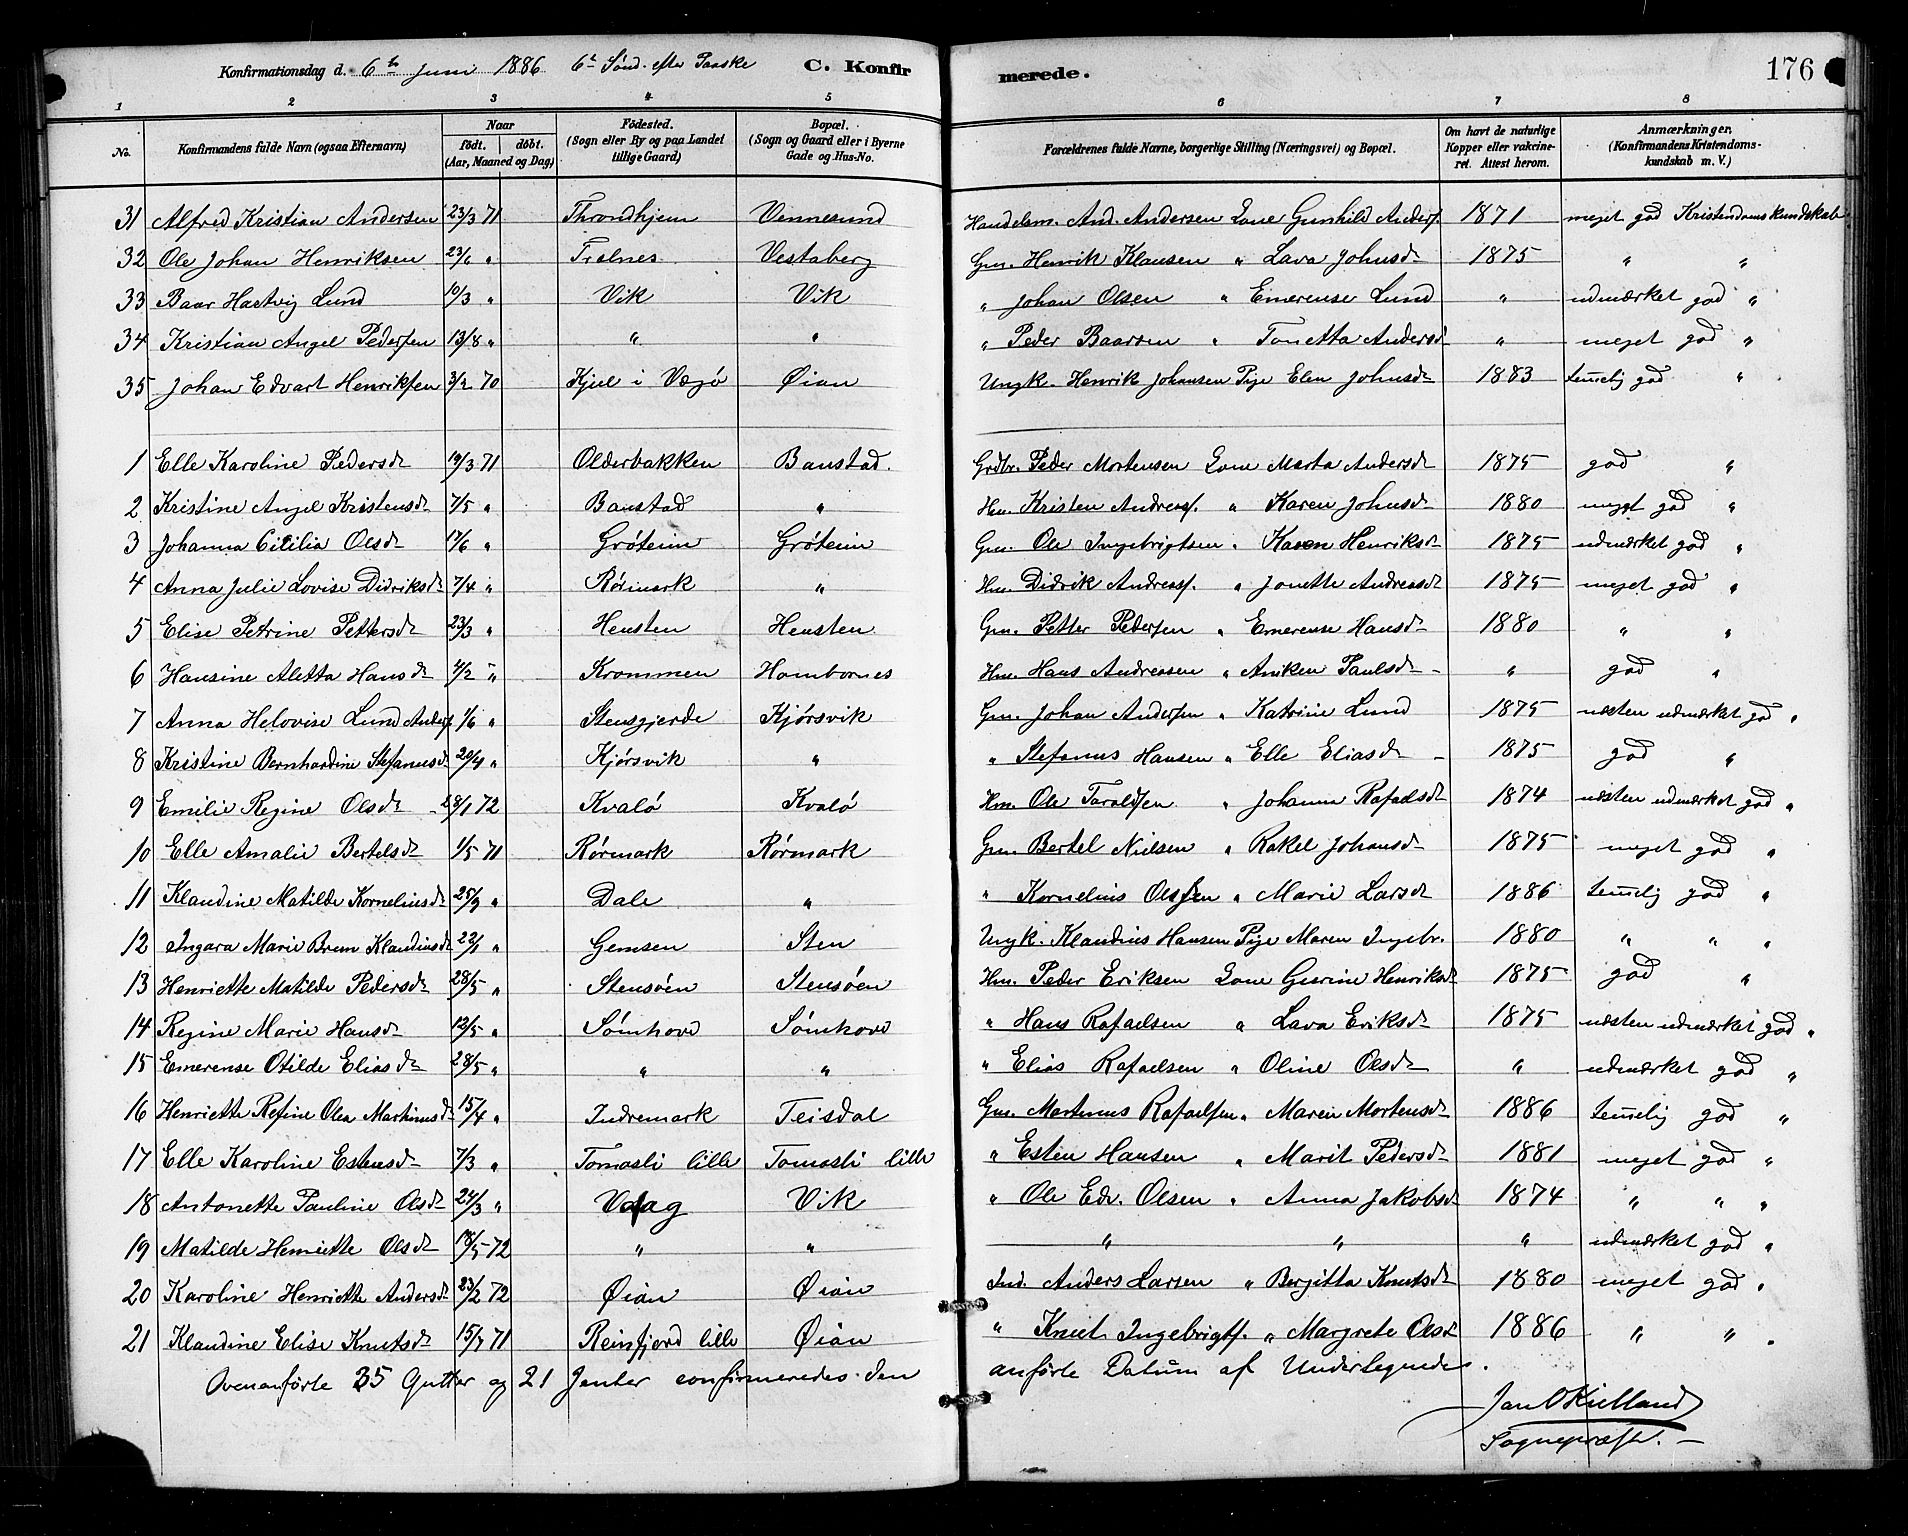 Konfirmationsdag d. 6te Juni 1886 6te Sønd. efter Paaske C. Konfir merede. 176
1 2 3 4 5 6 7 8
No. Konfirmandens fulde Navn (ogsaa Efternavn) Naar født. døbt. (Aar, Maaned og Dag) Fødested. (Sogn eller By og paa Landet tillige Gaard) Bopæl. (Sogn og Gaard eller i Byerne Gade og Hus-No.) Forældrenes fulde Navne, borgerlige Stilling (Næringsvei) og Bopæl. Om havt de naturlige Kopper eller vakcineret. Attest herom. Anmærkninger. (Konfirmandens Kristendomskundskab m. V.)
31 Alfred Kristian Andersen 23/3 71 Throndhjem Vennesund Handelsm. And. Andersen Kone Gunhild Anders. 1871 meget god Kristendomskundskab
32 Ole Johan Henriksen 23/6 " Trelnes Vestaberg Gm. Henrik Klausen " Lava Johnsd. 1875 " "
33 Baar Hartvig Lund 10/3 " Vik Vik " Johan Olsen " Emerense Lund " udmærket god "
34 Kristian Angel Pedersen 13/8 " " " " Peder Baarsen " Tonetta Andersd " meget god "
35 Johan Edvart Henriksen 3/2 70 Kjul i Vægø Øian Ungk. Henrik Johansen Pige Elen Johnsd. 1883 temelig god "
1 Elle Karoline Pedersdr 19/3 71 Olderbakken Baustad. Grdbr. Peder Mortensen Kone Marta Andersdr 1875 god "
2 Kristine Angel Kristensdr 7/5 " Baustad " Hm. Kristen Andreass. " Karen Johnsdr 1880 meget god "
3 Johanna Cicilia Olsdr 17/6 " Grøteim Grøteim Gm. Ole Ingebrigtsen " Karen Henriksdr 1875 udmærket god "
4 Anna Julie Lovise Didriksdr 7/4 " Rørmark " Hm. Didrik Andreass. " Jonette Andreasdr 1875 meget god "
5 Elise Petrine Pettersdr 23/3 " Hensten Hensten Gm. Petter Pedersen " Emerense Hansdr 1880 " "
6 Hansine Aletta Hansdr 4/2 " Krommen Hombornes Hm. Hans Andreasen " Aniken Paulsdr " god "
7 Anna Helovise Lund Anders. 1/6 " Stensgjerde Kjørsvik Gm. Johan Andersen " Katrine Lund 1875 næsten udmærket god "
8 Kristine Bernhardine Stefanusdr 20/4 " Kjørsvik " " Stefanus Hansen " Elle Eliasdr 1875 god "
9 Emilie Regine Olsdr 28/1 72 Kvalø Kvalø Hm. Ole Taraldsen " Johanna Rafaelsdr 1874 næsten udmærket god "
10 Elle Amalie Bertelsdr 1/5 71 Rørmark Rørmark Gm. Bertel Nielsen " Rakel Johansdr 1875 meget god "
11 Klaudine Matilde Korneliusdr 25/9 " Dale " " Kornelius Olsen " Marie Larsdr 1886 temelig god "
12 Ingara Marie Brun Klaudiusdr 22/1 " Gemsen Sten Ungk. Klaudius Hansen Pige Maren Ingebr. 1880 " " "
13 Henriette Matilde Pedersdr 28/5 " Stensøen Stensøen Hm. Peder Eriksen Kone Gurine Henriksdr 1875 god "
14 Regine Marie Hansdr 12/5 " Sømhovd Sømhovd " Hans Rafaelsen " Lava Eriksdr 1875 næsten udmærket god "
15 Emerense Otilde Eliasdr 28/5 " " " " Elias Rafaelsen " Oline Olsdr " udmærket god "
16 Henriette Refine Olea Martinusdr 15/4 " Indremark Teisdal Gm. Martinus Rafaelsen " Maren Mortensdr 1886 temelig god "
17 Elle Karoline Estensdr 7/3 " Tomasli lille Tomasli lille " Esten Hansen " Marit Pedersdr 1881 meget god "
18 Antonette Pauline Olsdr 24/3 " Vaag Vik " Ole Edv. Olsen " Anna Jakobsdr 1874 " " "
19 Matilde Henriette Olsdr 18/5 72 " " " " " udmærket god "
20 Karoline Henriette Andersdr 23/2 72 Øian Øian Ind. Anders Larsen " Bergitta Knutsdr 1880 meget god "
21 Klaudine Elise Knutsdr 15/7 71 Reinfjord lille Øian " Knut Ingebrigts. " Margrete Olsdr 1886 " " "
Ovenanførte 35 Gutter og 21 Jenter confirmeredes den anførte Datum af Undertegnede.
Jan O Kielland
Sognepræst.